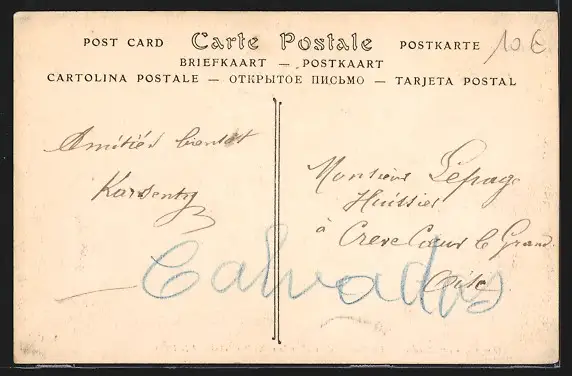 POST CARD Carte Postale POSTKARTE
BRIEFKAART — POSTKAART
CARTOLINA POSTALE — ОТКРЫТОЕ ПИСЬМО — TARJETA POSTAL
10 €
Amitiés bientôt
Karsenty
Monsieur Lepage
Huissier
à Creve Coeur le Grand
Oise
Calvados